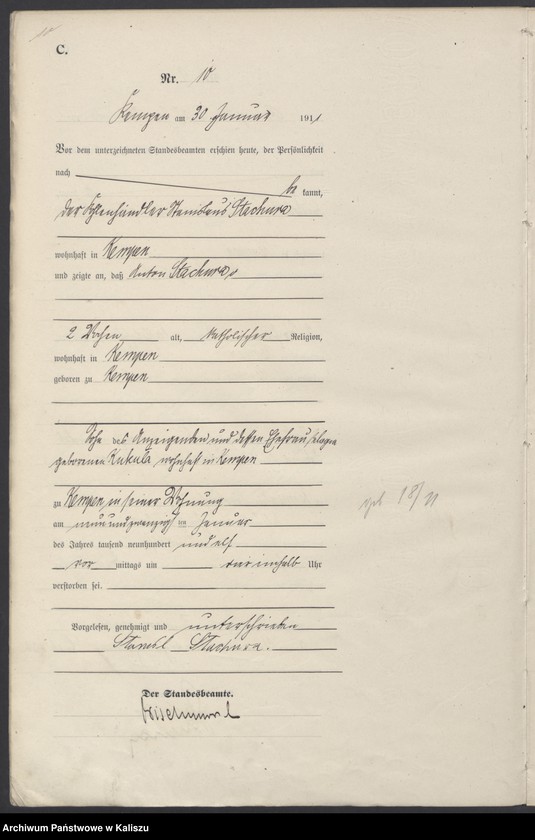 C.
Nr. 10
Kempen am 30 Januar 1911
Vor dem unterzeichneten Standesbeamten erschien heute, der Persönlichkeit
nach
be kannt,
der Kohlenhändler Stanislaus Stachura
wohnhaft in Kempen
und zeigte an, daß Anton Stachura,
2 Wochen alt, katholischer Religion,
wohnhaft in Kempen
geboren zu Kempen
Sohn des Anzeigenden und dessen Ehefrau
geborenen Kukuła wohnhaft in Kempen
zu Kempen, in seiner Wohnung
am neunundzwanzigsten Januar
des Jahres tausend neunhundert und elf
vor mittags um Uhr
verstorben sei.
Vorgelesen, genehmigt und unterschrieben
Stachura.
Der Standesbeamte.
geb 18/11
Archiwum Państwowe w Kaliszu